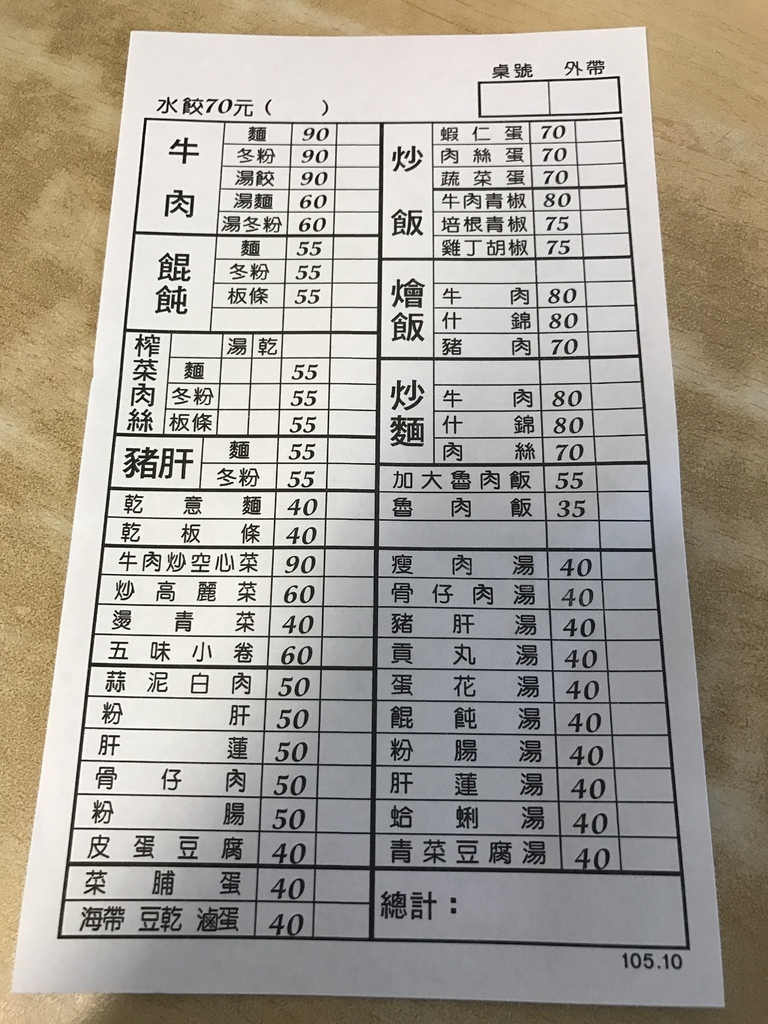 桌號 外帶
水餃70元 ( )
牛肉
麵 90
冬粉 90
湯餃 90
湯麵 60
湯冬粉 60
餛飩
麵 55
冬粉 55
板條 55
榨菜肉絲
湯 乾
麵 55
冬粉 55
板條 55
豬肝
麵 55
冬粉 55
乾意麵 40
乾板條 40
牛肉炒空心菜 90
炒高麗菜 60
燙青菜 40
五味小卷 60
蒜泥白肉 50
粉肝 50
肝蓮 50
骨仔肉 50
粉腸 50
皮蛋豆腐 40
菜脯蛋 40
海帶 豆乾 滷蛋 40
炒飯
蝦仁蛋 70
肉絲蛋 70
蔬菜蛋 70
牛肉青椒 80
培根青椒 75
雞丁胡椒 75
燴飯
牛肉 80
什錦 80
豬肉 70
炒麵
牛肉 80
什錦 80
肉絲 70
加大魯肉飯 55
魯肉飯 35
瘦肉湯 40
骨仔肉湯 40
豬肝湯 40
貢丸湯 40
蛋花湯 40
餛飩湯 40
粉腸湯 40
肝蓮湯 40
蛤蜊湯 40
青菜豆腐湯 40
總計：
105.10